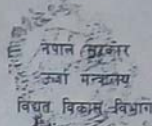 नेपाल सरकार
उर्जा मन्त्रालय
विद्युत विकास विभाग